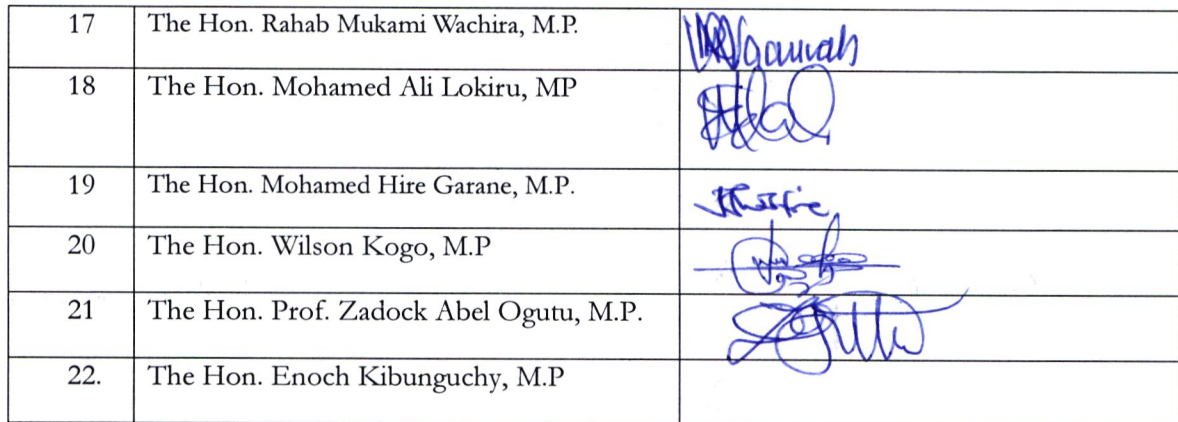 17 The Hon. Rahab Mukami Wachira, M.P.
18 The Hon. Mohamed Ali Lokiru, MP
19 The Hon. Mohamed Hire Garane, M.P.
20 The Hon. Wilson Kogo, M.P
21 The Hon. Prof. Zadock Abel Ogutu, M.P.
22. The Hon. Enoch Kibunguchy, M.P